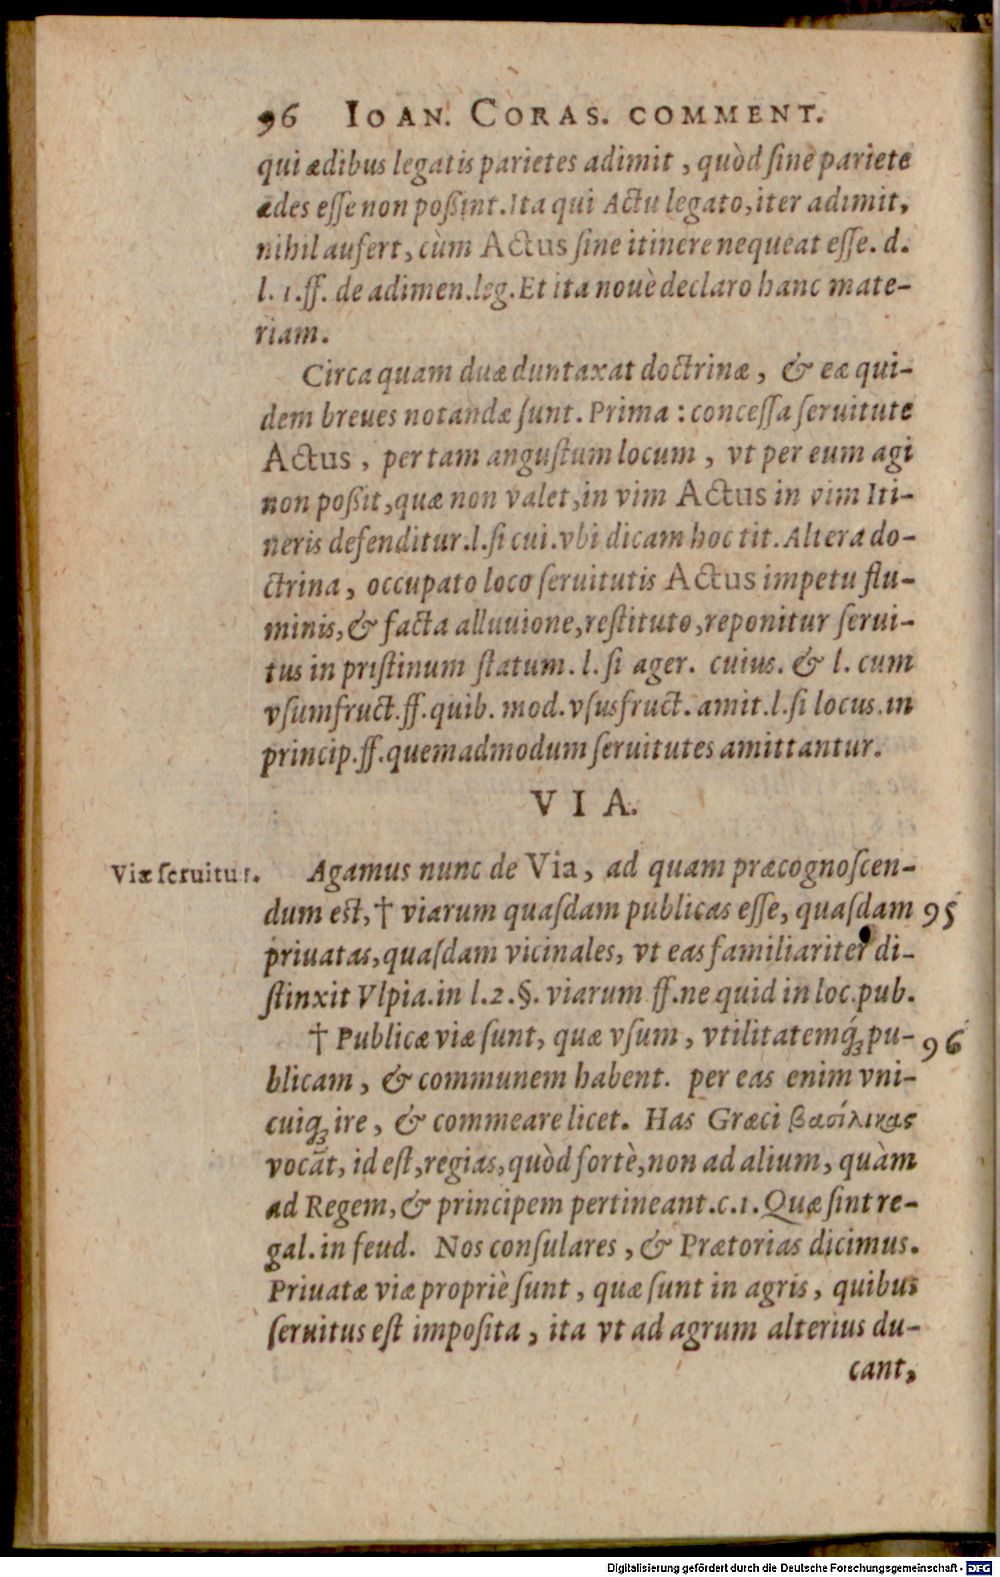 96 IOAN. CORAS. COMMENT.
qui ædibus legatis parietes adimit, quòd ſine pariete
ædes eſſe non poßint. Ita qui Actu legato, iter adimit,
nihil aufert, cùm Actus ſine itinere nequeat eſſe. d.
l. 1. ff. de adimen. leg. Et ita nouè declaro hanc mate-
riam.
Circa quam duæ duntaxat doctrinæ, & eæ qui-
dem breues notandæ ſunt. Prima: conceſſa ſeruitute
Actus, per tam anguſtum locum, vt per eum agi
non poßit, quæ non valet, in vim Actus in vim Iti-
neris defenditur. l. ſi cui. vbi dicam hoc tit. Altera do-
ctrina, occupato loco ſeruitutis Actus impetu flu-
minis, & facta alluuione, reſtituto, reponitur ſerui-
tus in priſtinum ſtatum. l. ſi ager. cuius. & l. cum
vſumfruct. ff. quib. mod. vſusfruct. amit. l. ſi locus. in
princip. ff. quemadmodum ſeruitutes amittantur.
VIA.
Viæ ſeruitus.
Agamus nunc de Via, ad quam præcognoſcen-
dum est, † viarum quaſdam publicas eſſe, quaſdam 95
priuatas, quaſdam vicinales, vt eas familiariter di-
ſtinxit Vlpia. in l. 2. §. viarum ff. ne quid in loc. pub.
† Publicæ viæ ſunt, quæ vſum, vtilitatemq́; pu- 96
blicam, & communem habent. per eas enim vni-
cuiq; ire, & commeare licet. Has Græci βασίλικας
vocāt, id eſt, regias, quòd fortè, non ad alium, quàm
ad Regem, & principem pertineant. c. 1. Quæ ſint re-
gal. in feud. Nos conſulares, & Prætorias dicimus.
Priuatæ viæ propriè ſunt, quæ ſunt in agris, quibus
ſeruitus eſt impoſita, ita vt ad agrum alterius du-
cant,
Digitalisierung gefördert durch die Deutsche Forschungsgemeinschaft - DFG